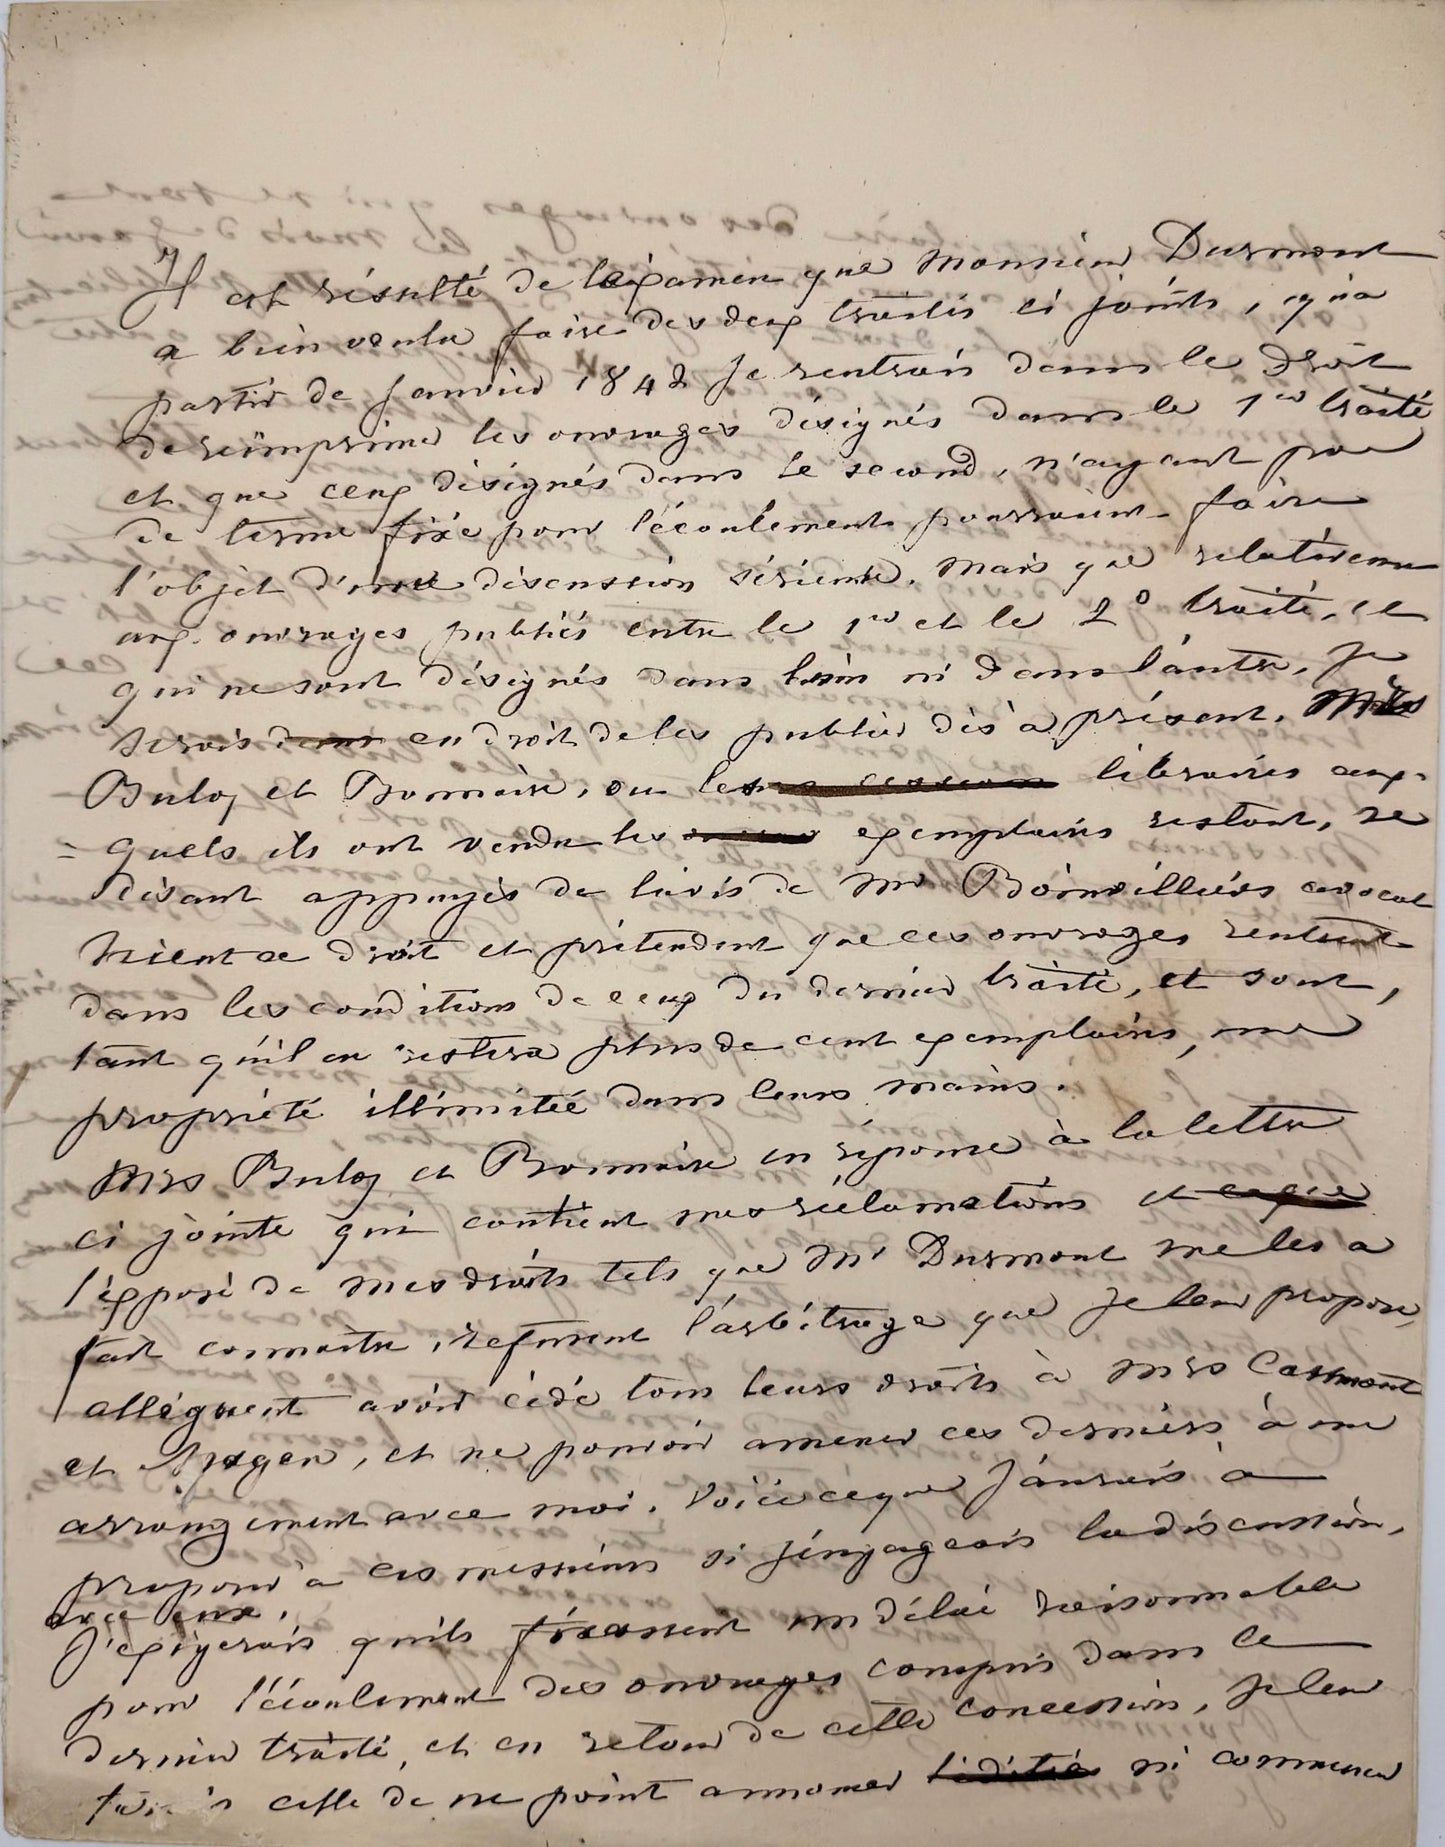 Il est résulté de l'examen que Monsieur Durmont
a bien voulu faire des deux traités ci joints, qu'à
partir de Janvier 1842 je rentrais dans le droit
de réimprimer les ouvrages désignés dans le 1er traité
et que ceux désignés dans le second, n'ayant pas
de terme fixé pour l'écoulement pourraient faire
l'objet d'une discussion sérieuse. Mais que relativement
aux ouvrages publiés entre le 1er et le 2° traité, et
qui ne sont désignés dans l'un ni dans l'autre, je
serais en droit de les publier dès à présent. Mrs
Buloz et Bonnaire, ou les libraires aux=
=quels ils ont vendu les exemplaires restant, se
disant appuyés de l'avis de Mr Boinvilliers avocat
nient ce droit et prétendent que ces ouvrages rentrent
dans les conditions de ceux du dernier traité, et sont,
tant qu'il en restera plus de cent exemplaires, une
propriété illimitée dans leurs mains.
Mrs Buloz et Bonnaire en réponse à la lettre
ci jointe qui contient mes réclamations et
l'exposé de mes droits tels que Mr Durmont me les a
fait connaitre, refusent l'arbitrage que je leur propose,
allèguent avoir cédé tous leurs droits à Mrs
et, et ne pouvoir amener ces derniers à un
arrangement avec moi. Voici ce que j'aurais à
proposer à ces messieurs si j'engageais la discussion,
avec eux.
J'exigerais qu'ils fixassent un délai raisonnable
pour l'écoulement des ouvrages compris dans le
dernier traité, et en retour de cette concession, je leur
ferais celle de ne point annoncer ni commencer